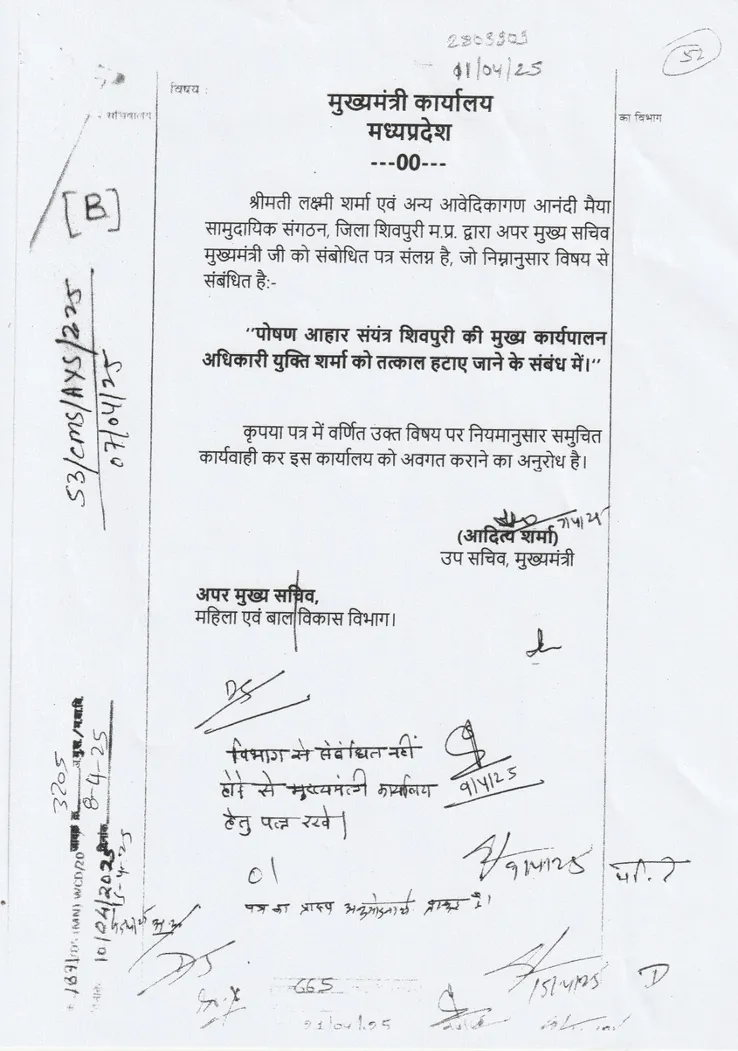 2803903
01/04/25
52
विषय :
सचिवालय
का विभाग
मुख्यमंत्री कार्यालय
मध्यप्रदेश
---00---
[B]
श्रीमती लक्ष्मी शर्मा एवं अन्य आवेदिकागण आनंदी मैया
सामुदायिक संगठन, जिला शिवपुरी म.प्र. द्वारा अपर मुख्य सचिव
मुख्यमंत्री जी को संबोधित पत्र संलग्न है, जो निम्नानुसार विषय से
संबंधित है:-
53/CMS/AYS/225
07/04/25
"पोषण आहार संयंत्र शिवपुरी की मुख्य कार्यपालन
अधिकारी युक्ति शर्मा को तत्काल हटाए जाने के संबंध में।"
कृपया पत्र में वर्णित उक्त विषय पर नियमानुसार समुचित
कार्यवाही कर इस कार्यालय को अवगत कराने का अनुरोध है।
7/4/25
(आदित्य शर्मा)
उप सचिव, मुख्यमंत्री
अपर मुख्य सचिव,
महिला एवं बाल विकास विभाग।
DS
विभाग से संबंधित नहीं
होने से मुख्यमंत्री कार्यालय
हेतु पत्र रखें।
9/4/25
01
9/4/25
पत्र का प्रारूप अनुमोदनार्थ प्रस्तुत है।
3205
8-4-25
10/04/2025
DS
665
15/4/25
D
21/04/25